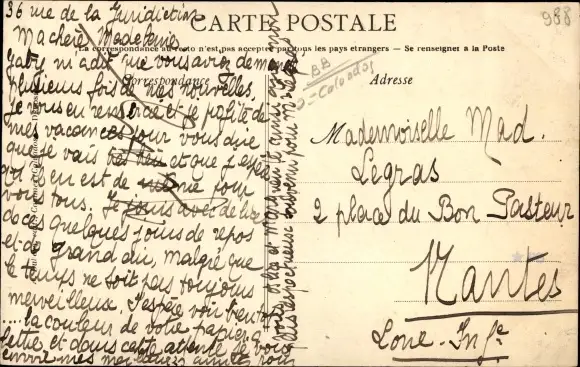 36 rue de la Juridiction
CARTE POSTALE
988
Ma chère Madeleine
La correspondance au recto n'est pas acceptée par tous les pays etrangers — Se renseigner à la Poste
Gaby m'a dit que vous aviez demandé
Correspondance
Adresse
plusieurs fois de mes nouvelles.
Je vous en remercie et je profite de
mes vacances pour vous dire
que je vais très bien et que j'espère
qu'il en est de même pour
vous tous. Je jouis avec délices
de ces quelques jours de repos
et de grand air, malgré que
le temps ne soit pas toujours
merveilleux. J'espère voir bientôt
.... la couleur de votre papier à
lettre et dans cette attente je vous
envoie mes meilleures amitiés pour
BB
Calvados
Mademoiselle Mad.
Legras
2 place du Bon Pasteur
Nantes
Loire-Infre